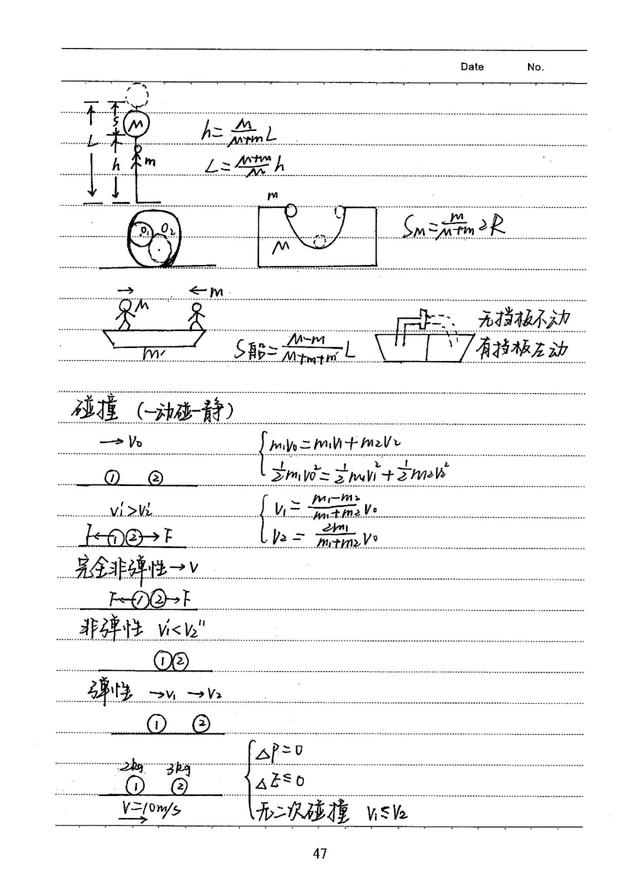 Date No.
M
S
L
h
m
h=M/(M+m) L
L=(M+m)/M h
O₁ O₂
m
M
S_M=m/(M+m) 2R
M
m
m'
S船=(M-m)/(M+m+m') L
无挡板不动
有挡板左动
碰撞 (一动碰一静)
→V₀
① ②
m₁v₀=m₁v₁+m₂v₂
½m₁v₀²=½m₁v₁²+½m₂v₂²
v₁'>v₂'
F←①②→F
V₁=(m₁-m₂)/(m₁+m₂) V₀
V₂=2m₁/(m₁+m₂) V₀
完全非弹性→V
F←①②→F
非弹性 V₁'<V₂''
①②
弹性 →V₁ →V₂
① ②
2kg 3kg
① ②
V=10m/s
△P=0
△E≤0
无二次碰撞 V₁≤V₂
47